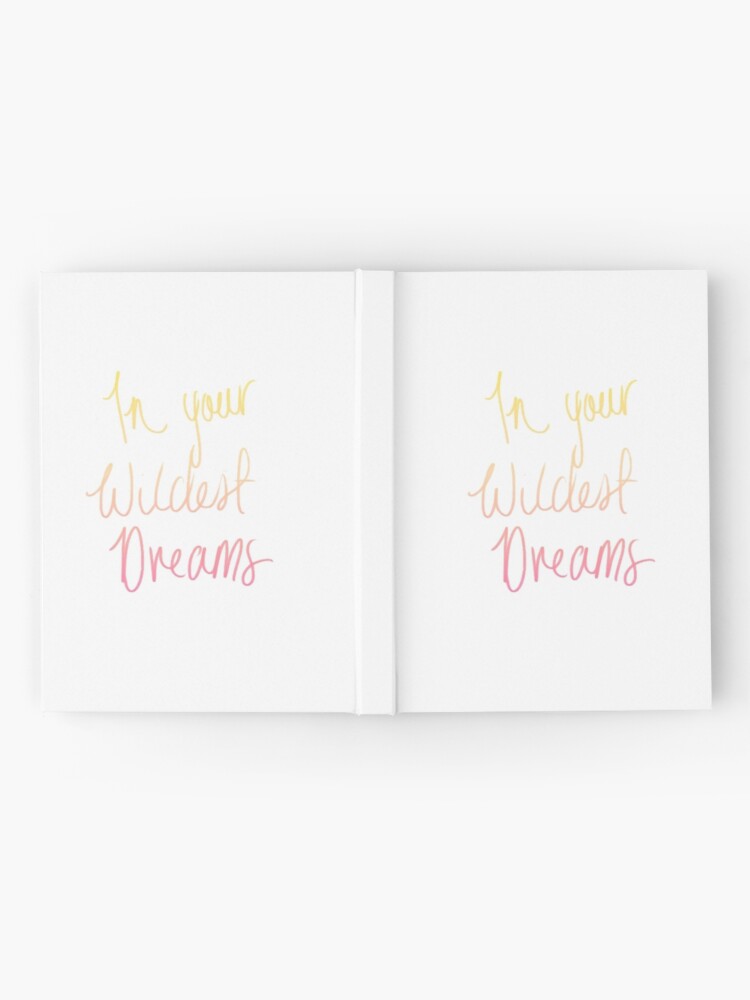 In your
Wildest
Dreams
In your
Wildest
Dreams